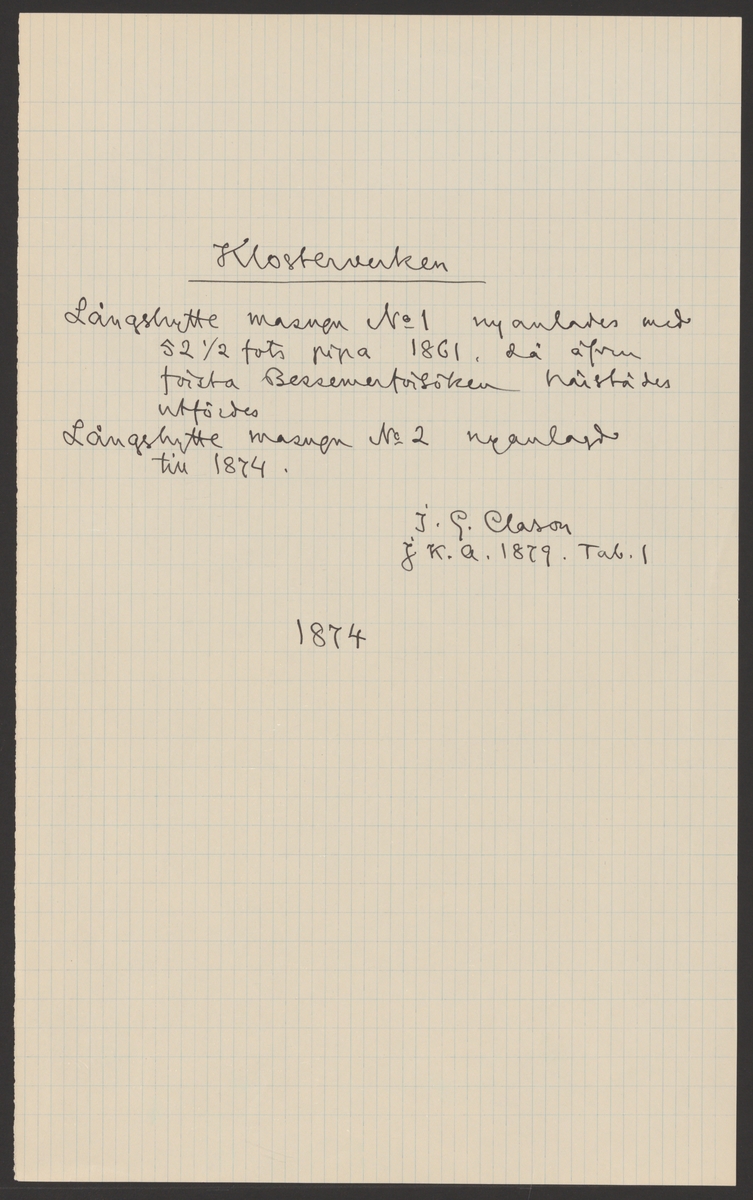 Klosterverken
Långshytte masugn No 1 nyanlades med
52 1/2 fots pipa 1861, då äfven
första Bessemerförsöken härstädes
utfördes
Långshytte masugn No 2 nyanlagd
till 1874.
J. G. Clason
J. K. A. 1879. Tab. 1
1874